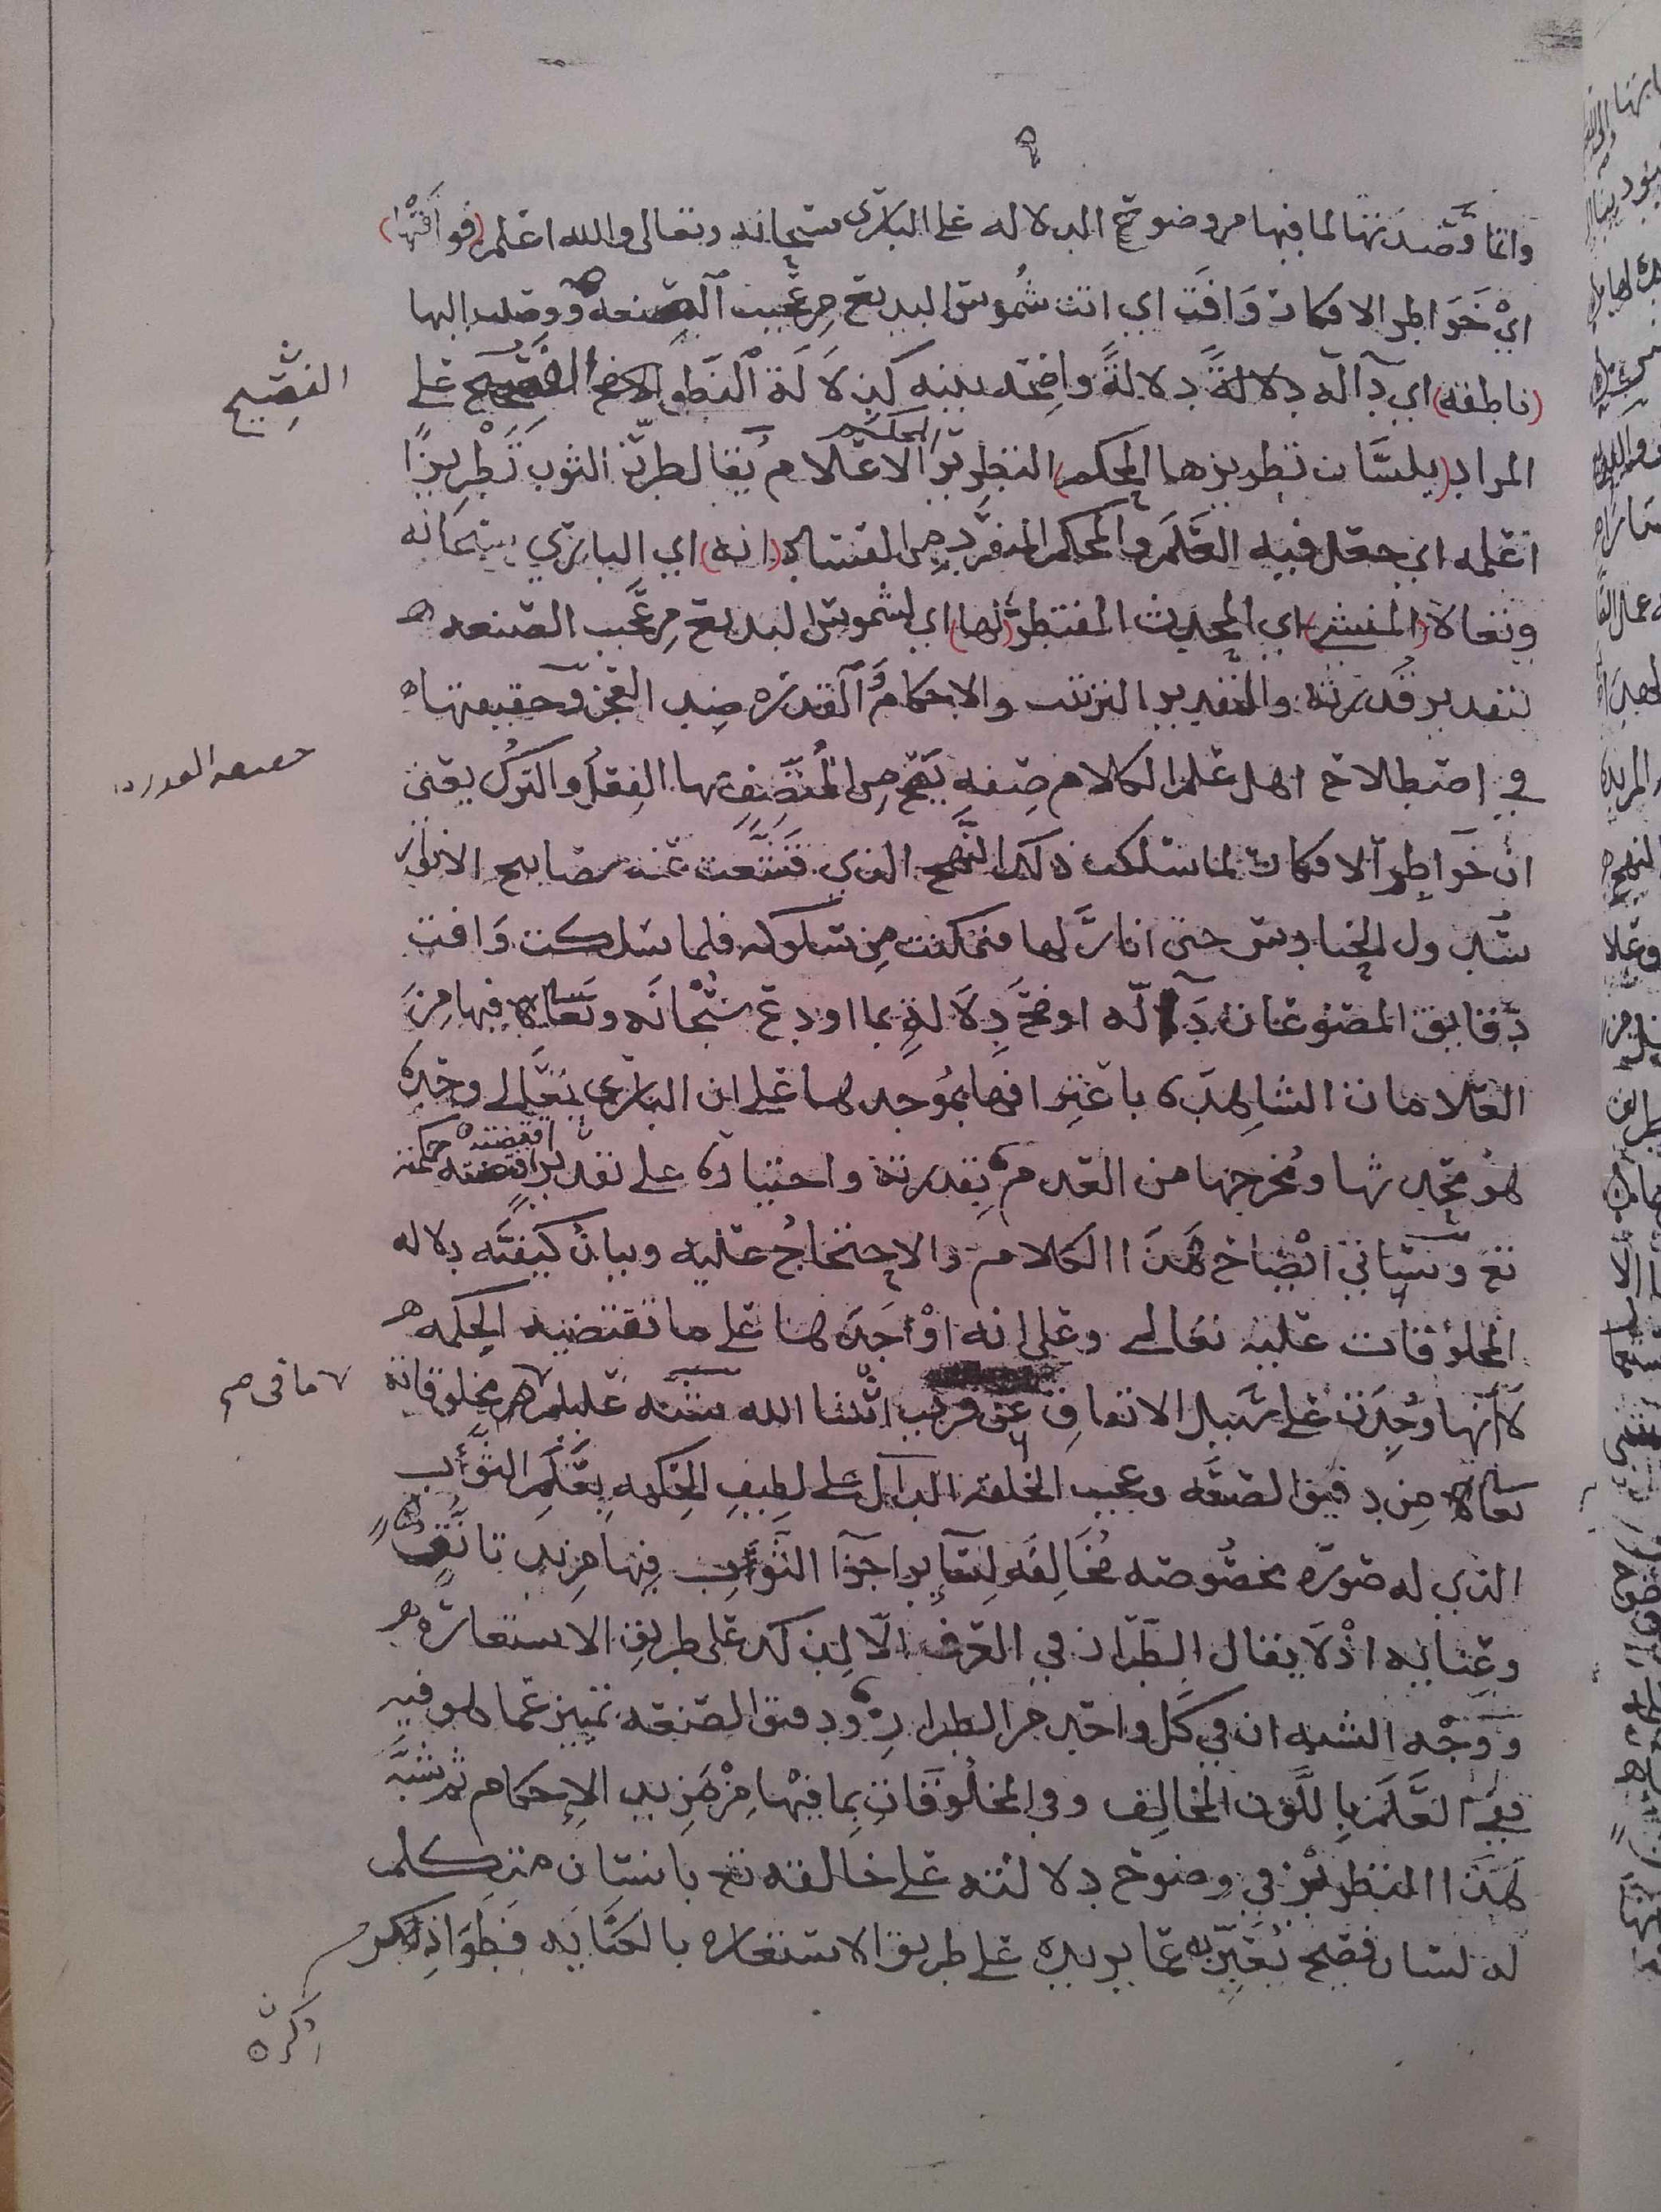 ٩
وانما قصدتها لما فيها من وضوح الدلاله على الباري سبحانه وتعالى والله اعلم (فوافتها)
اي خواطر الافكار وافت اي اتت شموس البديع من عجيب الصنعه ووصلت اليها
(ناطقه) اي دآلة دلالةً دلالةً واضحه بينه كدلالة النطق الفصيح على
الفصيح
المراد (بلسان تطريزها المحكم) التطريز الاعلام يقال طرّز الثوب تطريزًا
المحكم
اعلمه اي جعل فيه العلم والمحكم المنفرد من الفساد (انه) اي الباري سبحانه
وتعالا (المنشي) اي المحدث المفتطر (لها) اي لشموس البديع من عجيب الصنعه
بتقدير قدرته والتقدير الترتيب والاحكام والقدره ضد العجز وحقيقتها
في اصطلاح اهل علم الكلام صفه يصح من المتصف بها الفعل والترك يعني
حقيقه القدره
ان خواطر الافكار لما سلكت ذلك النهج الذي قشعت عنه مصابيح الانوار
سدول الحنادس حتى انار لها فتمكنت من سلوكه فلما سلكت وافت
دقايق المصنوعات دآلّه اوضح دلالةٍ بما اودع سبحانه وتعالا فيها من
العلامات الشاهده باعترافها بموجدها على ان الباري تعالى وحده
هو محدثها ومخرجها من العدم بقدرته واختياره على تقدير اقتضته حكمته
اقتضته
تع وسياتي ايضاح هذا الكلام والاحتجاج عليه وبيان كيفيّه دلاله
المخلوقات عليه تعالى وعلى انه اوجدها على ما تقتضيه الحكمه
لا انها وجدت على سبيل الاتفاق عن قريب انشا الله شبّه عليلم مخلوقاته
ما في صح
تعالا من دقيق الصنعه وعجيب الخلقه الدآل على لطيف الحكمه بعَلَم الثوب
الذي له صوره مخصوصه مخالفه لسآير اجزا الثوب فيها مزيد تانق
وعنايه اذ لا يقال الطراز في العرف الّا لذلك على طريق الاستعاره
ووجه الشبه ان في كل واحد من الطراز ودقيق الصنعه تمييز عما هو فيه
ففي العلم باللون المخالف وفي المخلوقات بما فيها من مزيد الإحكام ثم شبّه
هذا التطريز في وضوح دلالته على خالقه تع بانسان متكلم
له لسان فصيح يُعبّر به عما يريده على طريق الاستعاره بالكنايه فطوا ذكر
ذكره